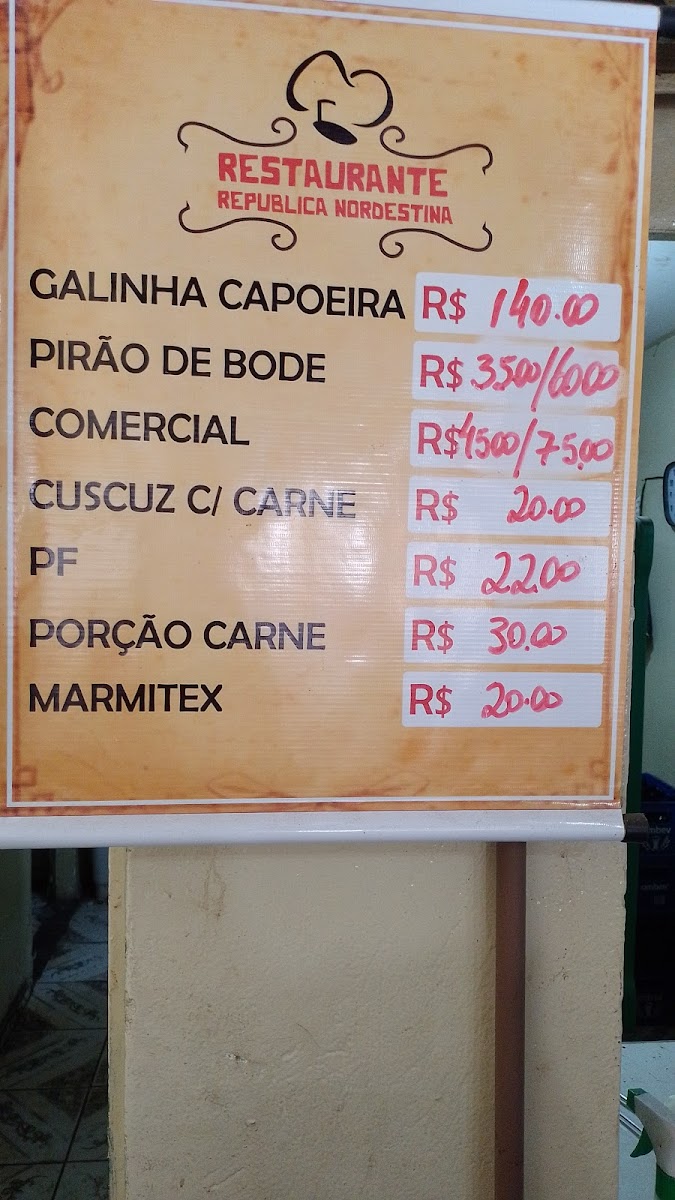 RESTAURANTE
REPUBLICA NORDESTINA
GALINHA CAPOEIRA R$ 140.00
PIRÃO DE BODE R$ 35.00/60.00
COMERCIAL R$ 45.00/75.00
CUSCUZ C/ CARNE R$ 20.00
PF R$ 22.00
PORÇÃO CARNE R$ 30.00
MARMITEX R$ 20.00